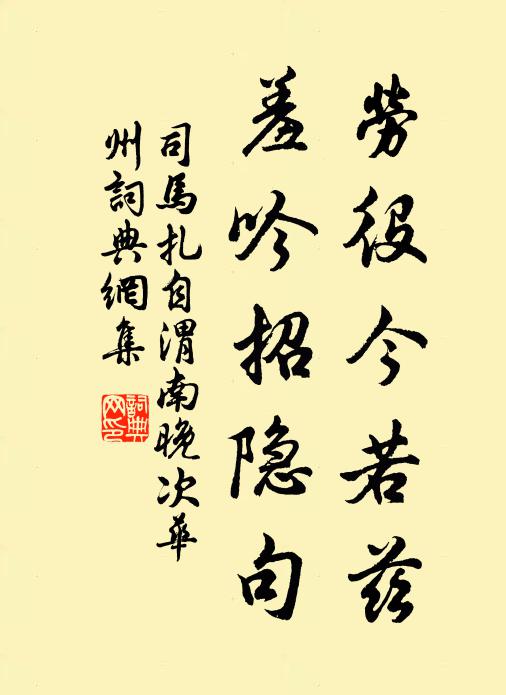 勞役今若茲
羞吟招隐句
司馬扎自渭南晚次華
州詞典網集
詞典
网印